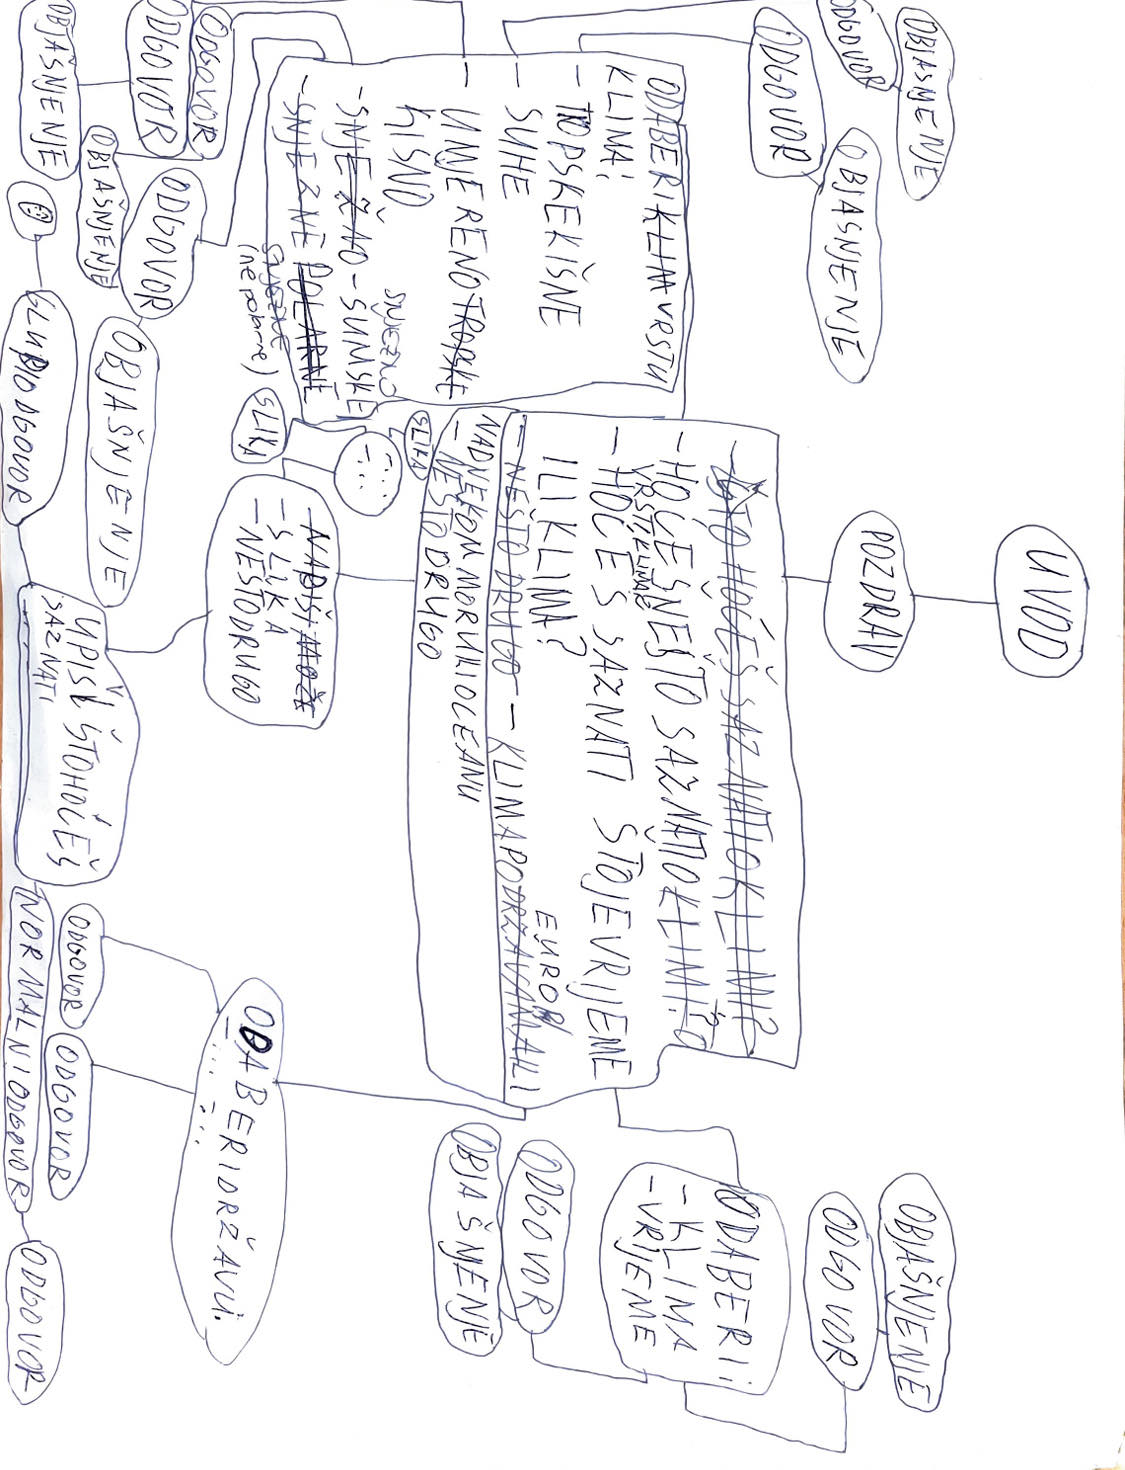 UVOD
POZDRAV
ŠTO HOĆEŠ SAZNATI O KLIMI?
- HOĆEŠ NEŠTO SAZNATI O KLIMI?
VRSTI KLIME
- HOĆEŠ SAZNATI ŠTO JE VRIJEME
ILI KLIMA?
EUROPI
- NEŠTO DRUGO - KLIMA PO DRŽAVAMA ILI
NAD NEKOM MORU ILI OCEANU
- NEŠTO DRUGO
ODABERI KLIMA VRSTU
KLIMA:
- TOPSKE KIŠNE
- SUHE
- UMJERENO TROPSKE
KIŠNO
- SNJEŽNO - ŠUMSKE
SNJEŽNO
- SNJEŽNE POLARNE
SNJEŽNE
(ne polarne)
OBJAŠNJENJE
ODGOVOR
ODGOVOR
OBJAŠNJENJE
ODGOVOR
OBJAŠNJENJE
ODGOVOR
OBJAŠNJENJE
ODGOVOR
OBJAŠNJENJE
SLIKA
SLIKA
- NAPIŠI
- SLIKA
- NEŠTO DRUGO
UPIŠI ŠTO HOĆEŠ
SAZNATI
GLUPI ODGOVOR
NORMALNI ODGOVOR
ODGOVOR
ODABERI:
- KLIMA
- VRIJEME
ODGOVOR
OBJAŠNJENJE
ODGOVOR
OBJAŠNJENJE
ODABERI DRŽAVU:
ODGOVOR
ODGOVOR